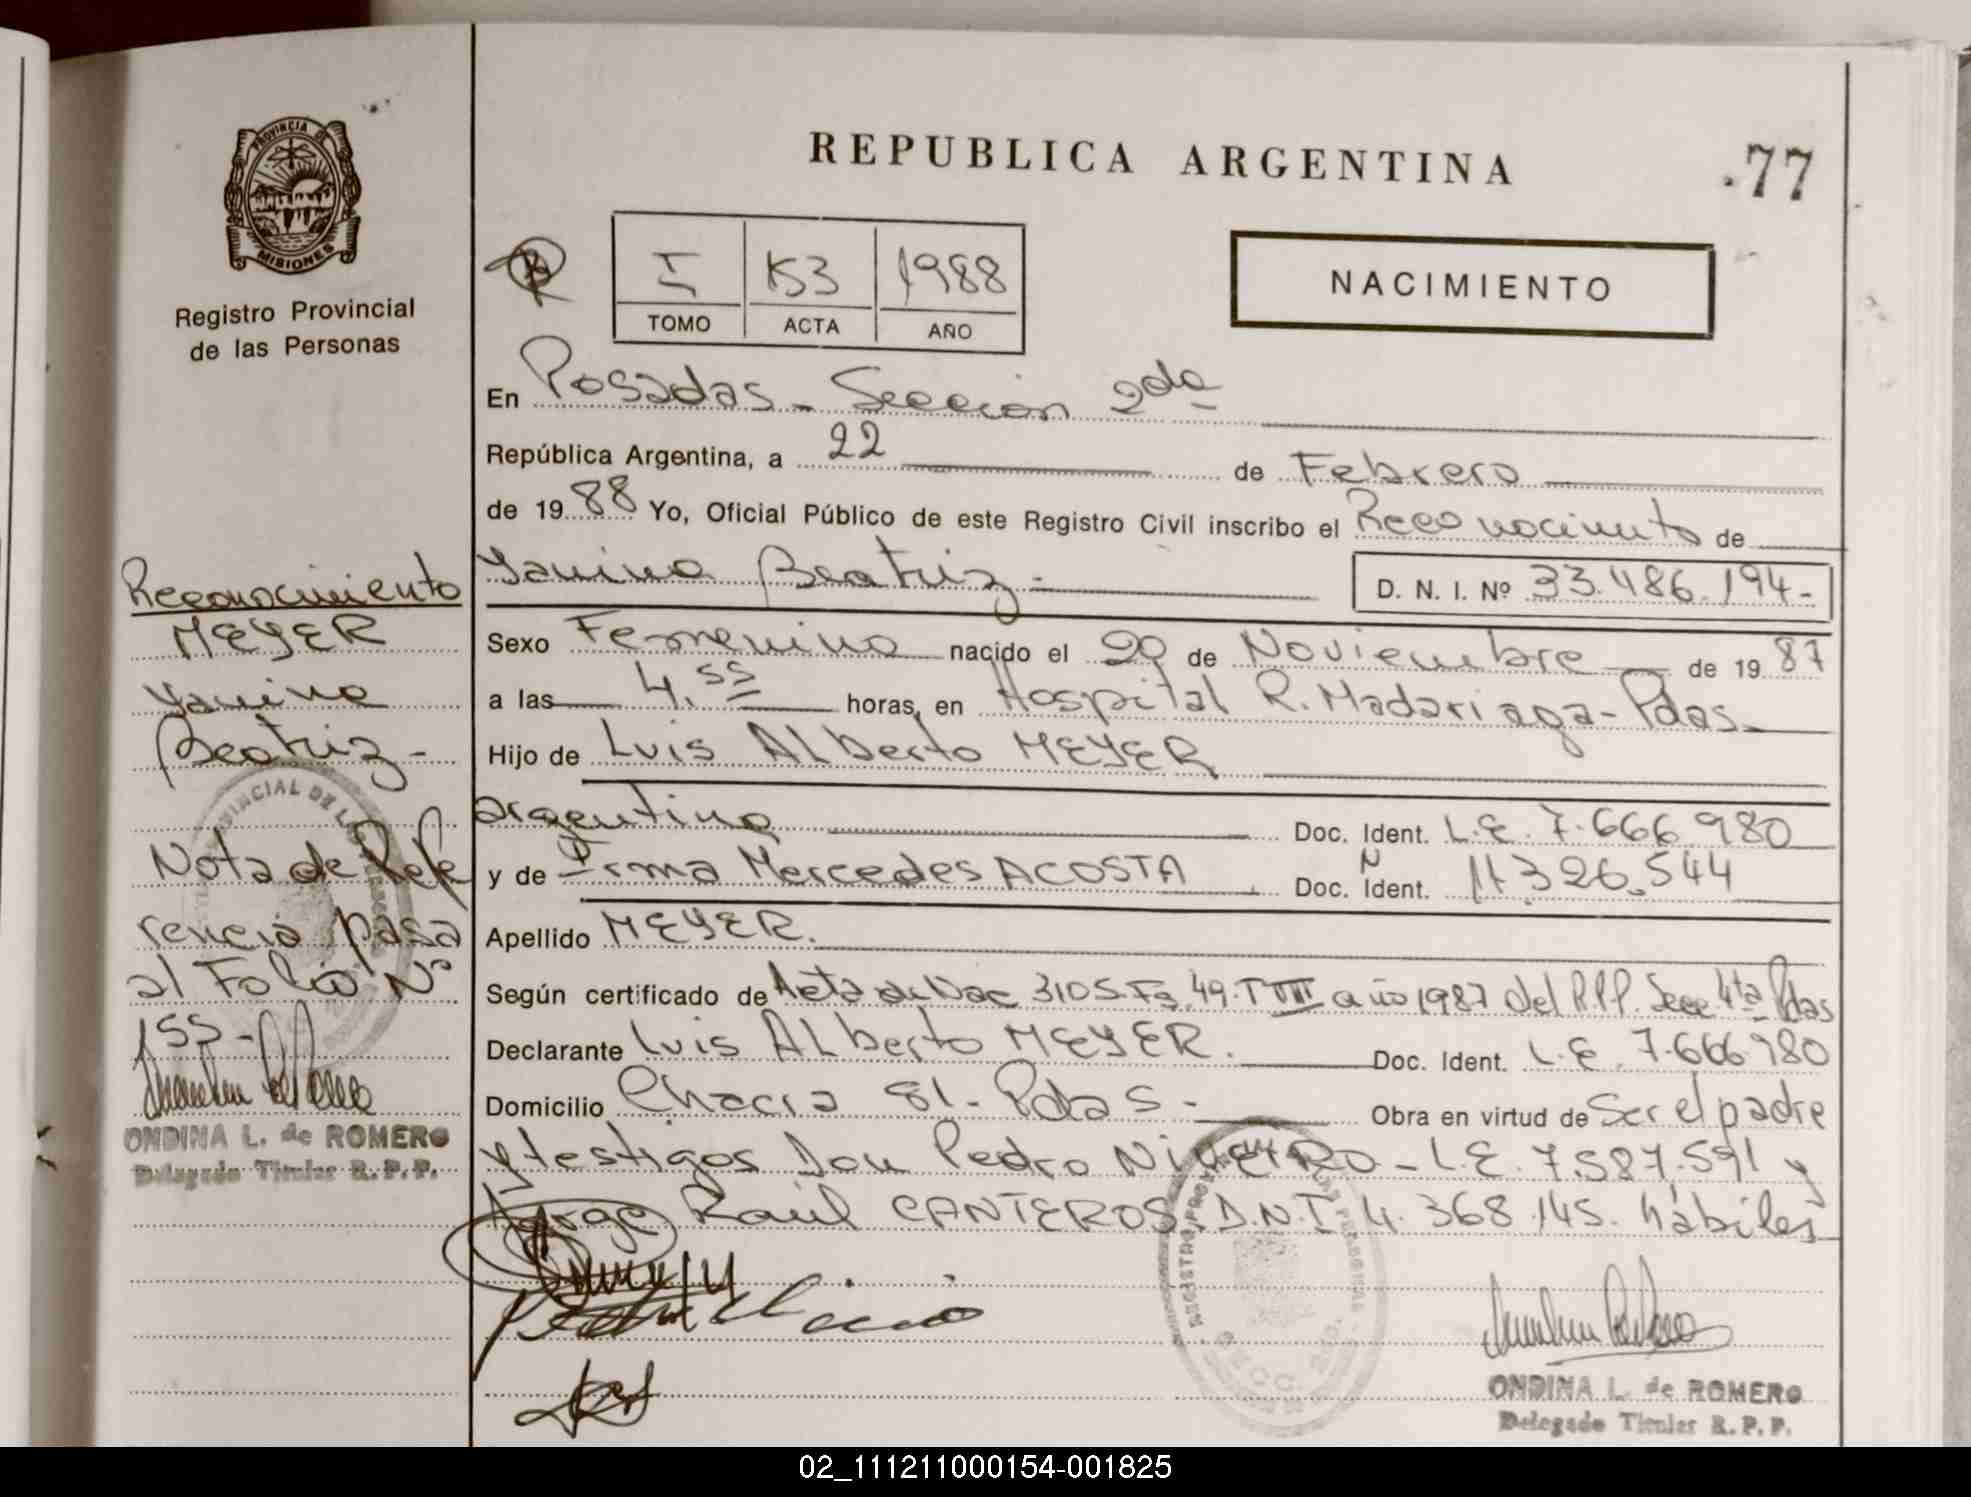 PROVINCIA DE
MISIONES
Registro Provincial
de las Personas
REPUBLICA ARGENTINA
.77
I 153 1988
TOMO ACTA AÑO
NACIMIENTO
En Posadas - Sección 2da
República Argentina, a 22 de Febrero
de 1988 Yo, Oficial Público de este Registro Civil inscribo el Reconocimiento de
Yanina Beatriz - D. N. I. Nº 33.486.194-
Sexo Femenino nacido el 20 de Noviembre de 1987
a las 4.55 horas, en Hospital R. Madariaga - Pdas
Hijo de Luis Alberto MEYER
argentino Doc. Ident. L.E. 7.666.980
y de Irma Mercedes ACOSTA Doc. Ident. 11.326.544
Apellido MEYER.
Según certificado de Acta de Nac 3105. Fº 49. T VIII año 1987 del R.P.P. Secc 4ta Pdas
Declarante Luis Alberto MEYER. Doc. Ident. L.E. 7.666.980
Domicilio Chacra 81 - Pdas - Obra en virtud de Ser el padre
y testigos Don Pedro - L.E. 7.587.591 y
Jorge Raúl CANTEROS D.N.I 4.368.145. hábiles
ONDINA L. de ROMERO
Delegado Titular R.P.P.
Reconocimiento
MEYER
Yanina
Beatriz -
Nota de Refe
rencia pasa
al Folio Nº
155 -
ONDINA L. de ROMERO
Delegado Titular R.P.P.
02_111211000154-001825